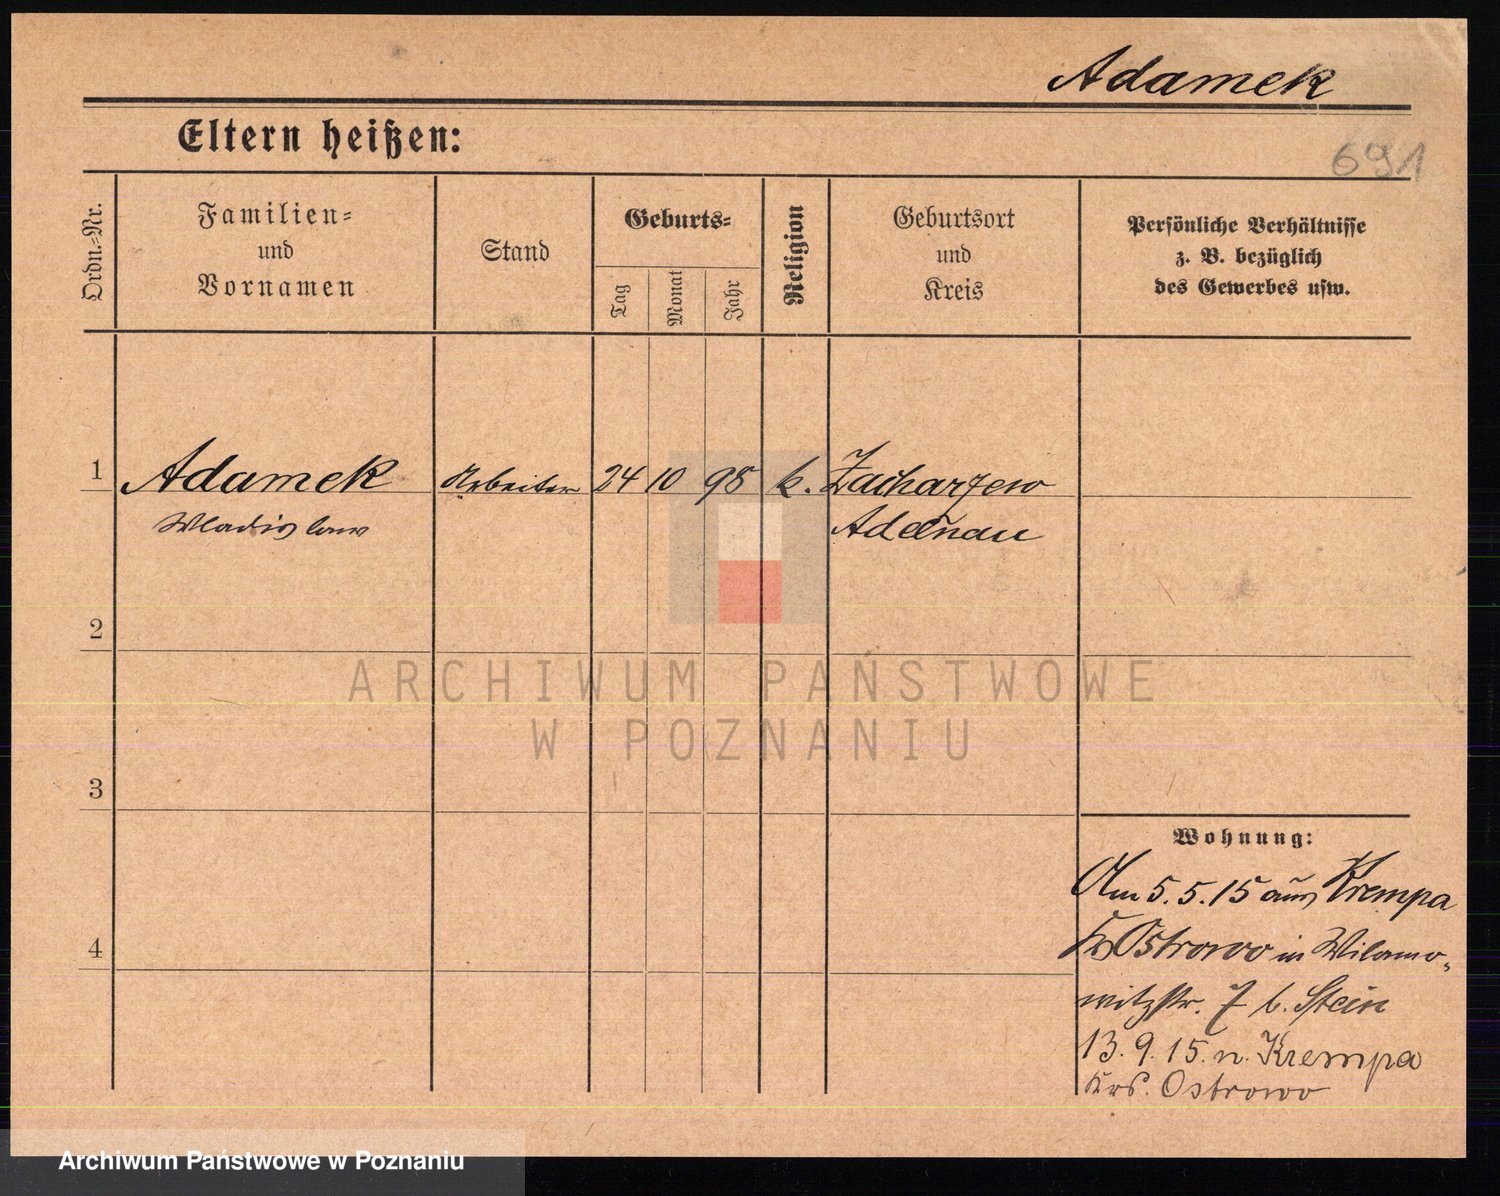 Adamek
Eltern heißen:
691
Ordn.-Nr.
Familien-
und
Vornamen
Stand
Geburts-
Tag
Monat
Jahr
Religion
Geburtsort
und
Kreis
Persönliche Verhältnisse
z. B. bezüglich
des Gewerbes usw.
1 Adamek Arbeiter 24 10 98 k. Zacharzew
Wladislaw Adelnau
2
3
4
Wohnung:
Am 5.5.15 aus Krempa
Krs Ostrowo in Wilamo-
witzstr. 7 b. Stein
13.9.15. n. Krempa
Krs. Ostrowo
ARCHIWUM PAŃSTWOWE
W POZNANIU
Archiwum Państwowe w Poznaniu